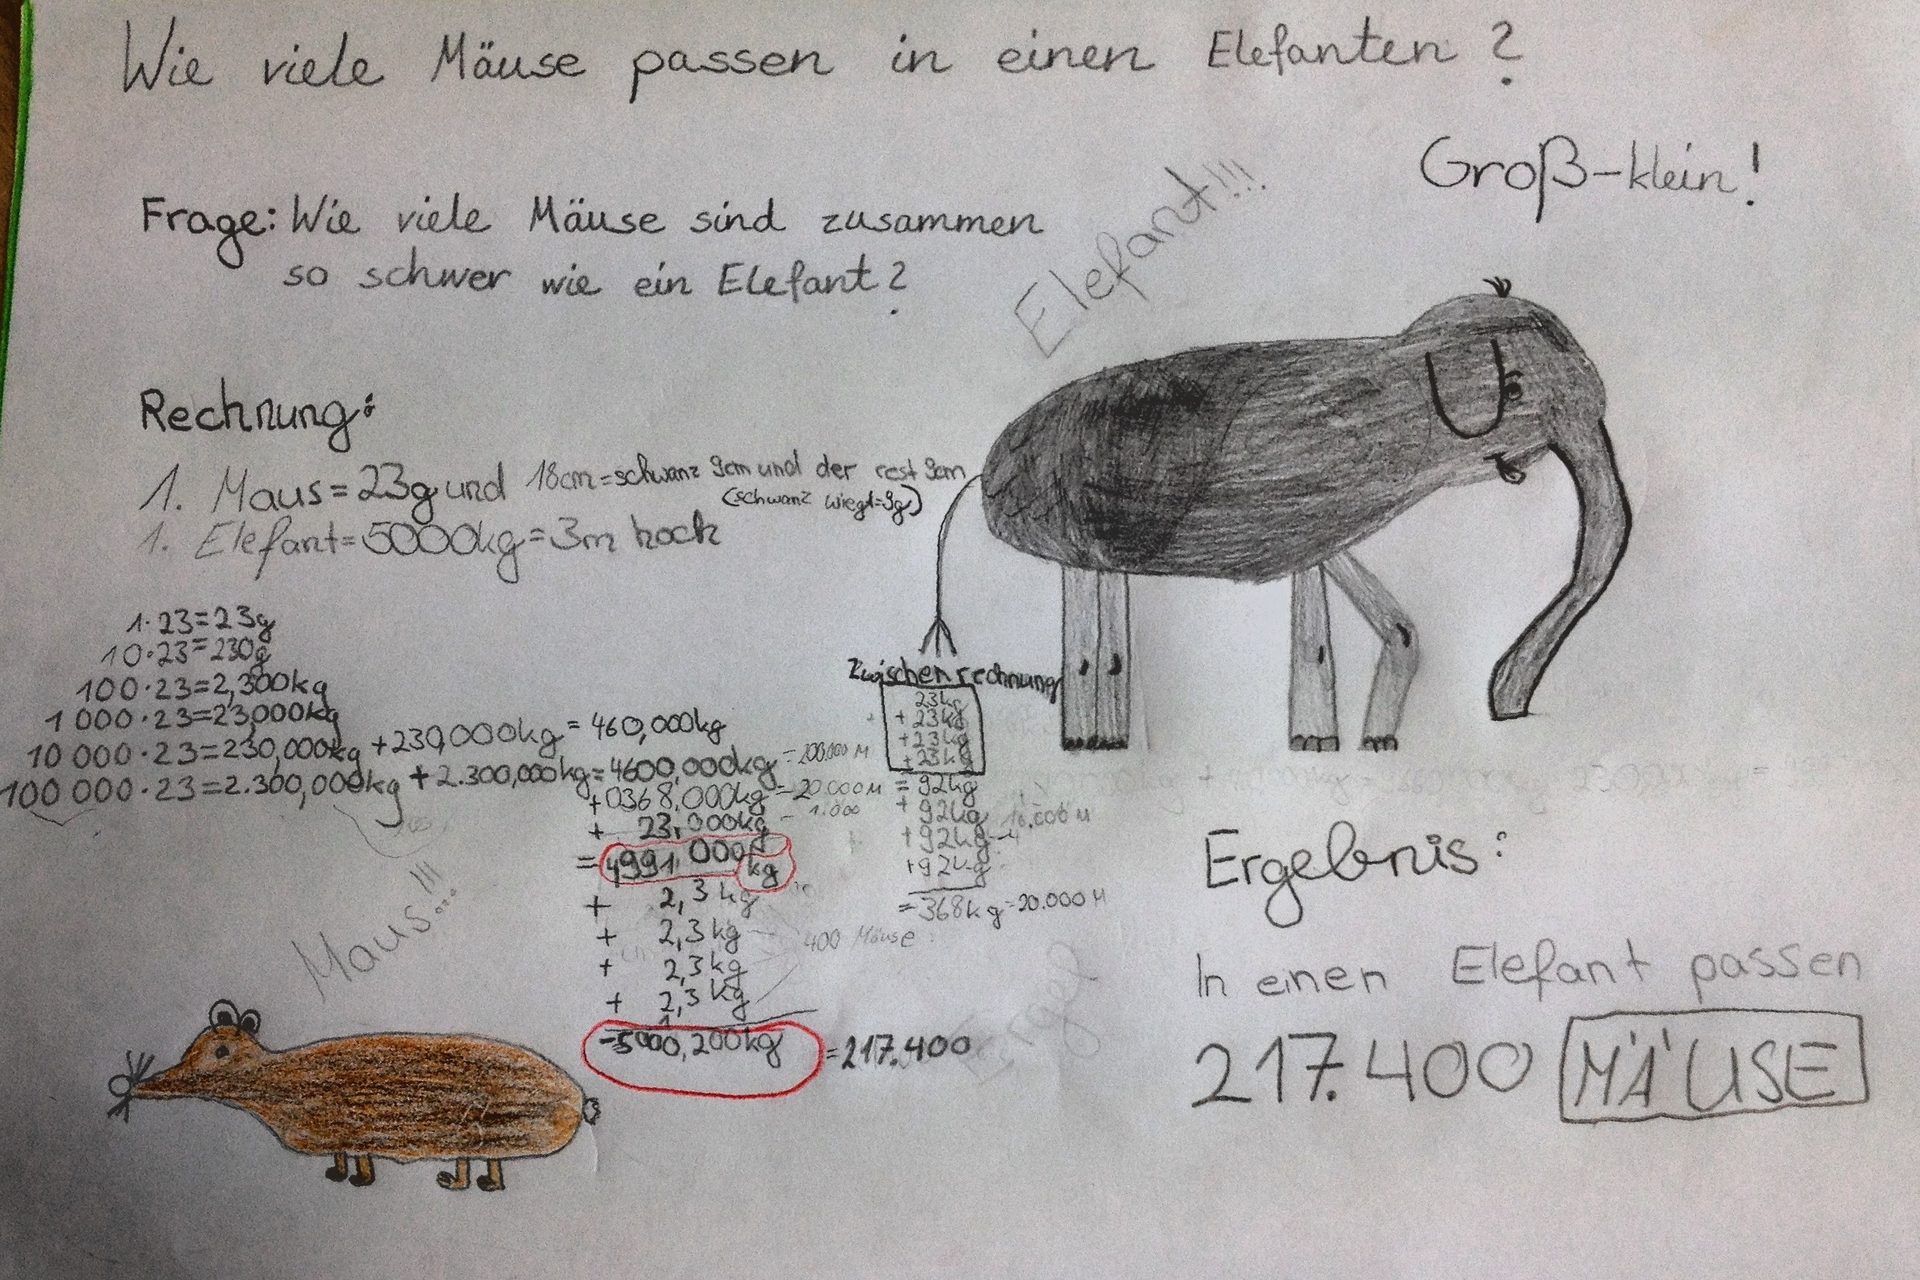 Wie viele Mäuse passen in einen Elefanten?
Groß-klein!
Elefant!!!
Frage: Wie viele Mäuse sind zusammen
so schwer wie ein Elefant?
Rechnung:
1. Maus=23g und 18cm=schwanz 9cm und der rest 9cm
(schwanz wiegt=3g)
1. Elefant=5000kg=3m hoch
1·23=23g
10·23=230g
100·23=2,300kg
1 000·23=23,000kg
10 000·23=230,000kg +230,000kg=460,000kg
100 000·23=2.300,000kg +2.300,000kg=4600,000kg =200.000 M
+0368,000kg =20.000 M
+ 23,000kg - 1.000
=4991,000 kg
+ 2,3kg
+ 2,3kg 400 Mäuse
+ 2,3kg
+ 2,3kg
=5000,200kg =217.400
Zwischenrechnung
23kg
+23kg
+23kg
+23kg
=92kg
+92kg
+92kg
+92kg
=368kg=20.000 M
Maus!!!
Ergebnis:
In einen Elefant passen
217.400 MÄUSE